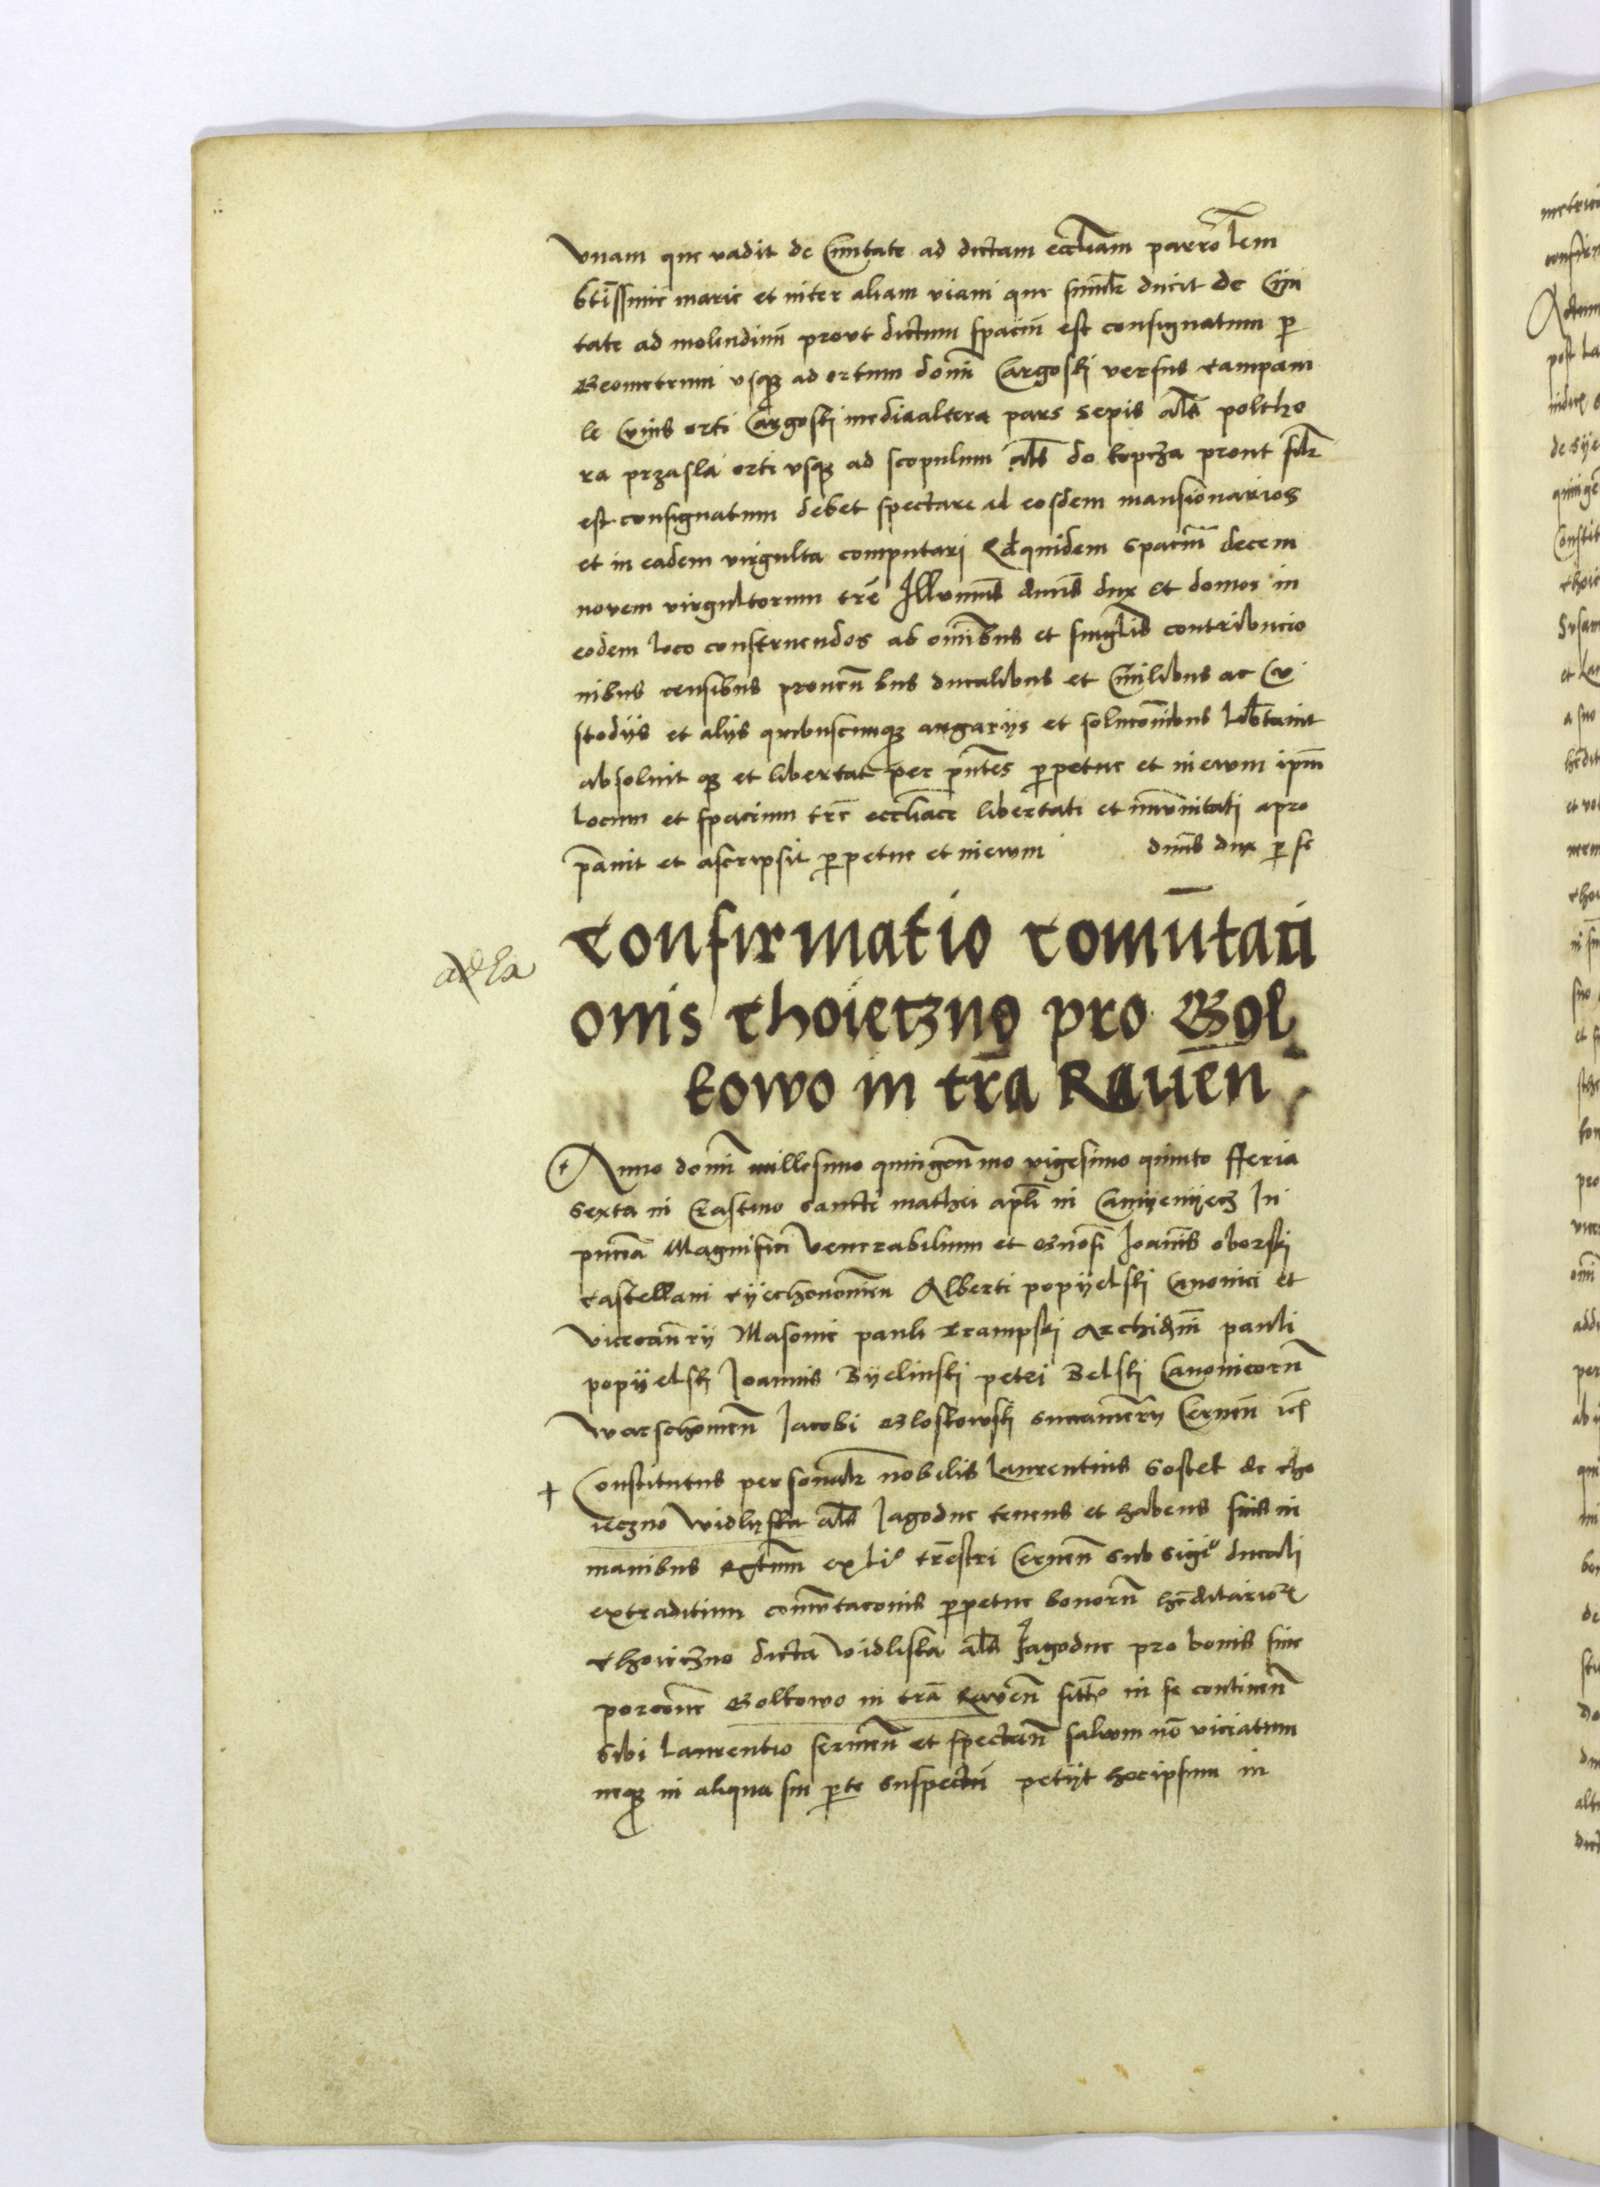 vnam que vadit de Ciuitate ad dictam eccliam parrolem
btissime marie et inter aliam viam que simlr ducit de Ciui
tate ad molendinu prout dictum spaciu est consignatum p
Geometrum vsq ad ortum domi Cargoski versus campam
le Cuius orti Cargoski media altera pars sepis als poltho
ra przasla orti vsq ad scopulum als do kopcza prout silr
est consignatum debet spectare ad eosdem mansionarios
et in eadem virgulta computari Qd quidem spacium decem
novem virgultorum tre Illumus dnus dux et domos in
eodem loco construendos ab omibus et singlis contribucio
nibus censibus prouen bus ducalibus et Ciuilibus ac Cu
stodijs et alijs quibuscumq angarijs et solucombus libtauit
absoluit q et libertat per pntes ppetue et in ewm ipm
locum et spacium tre eccliace libertati et imunitati apro
pauit et ascripsit ppetue et in ewm dnus dux p se
Confirmatio comutaci
onis Choieczno pro Gol
kowo in tra Rauen
ad Ea
Anno domi millesimo quingen mo vigesimo quinto fferia
sexta in Crastino sancti mathei apli in Camyenyecz In
pncia Magnifici Venerabilium et Gnosi Joanis oborski
castellani cyechonomien Alberti popyelski Canonici et
vicecanrij Masouie pauli Crampski Archidni pauli
popyelski Joannis Byelinski petri Belski Canonicorum
warschouien Jacobi Gloskowski succamerij Cernen ic
Constitutus personalr nobilis Laurentius Gostek de cho
ieczno widlyska als Jagodne tenens et habens suis in
manibus Rctum ex li trestri Cernen sub sigo ducali
extraditum comutacois ppetue bonoru heditarior
Choieczno dicta Vidliska als Jagodne pro bonis siue
porcione Golkowo in tra Raven sitt in se continen
sibi Laurentio seruien et spectan saluum no viciatum
neq in aliqua sui pte suspectu petijt hoc ipsum in